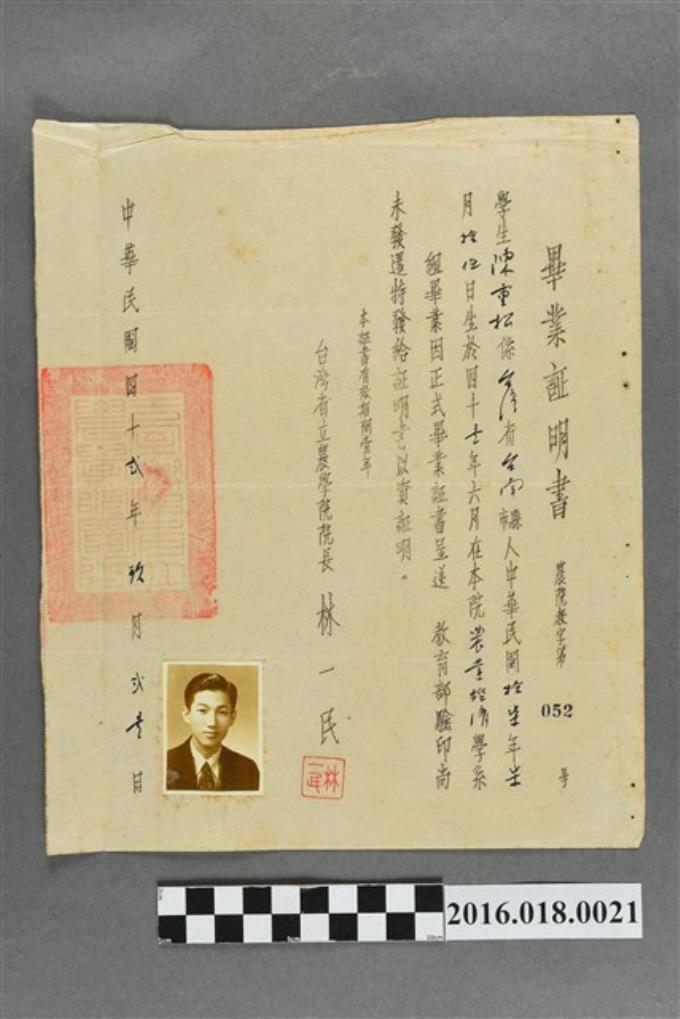 畢業証明書
農院教字第 052 号
學生陳重松係台灣省台南縣市人中華民國拾柒年
月拾伍日生於四十二年六月在本院農業經濟學系
組畢業因正式畢業証書呈送 教育部驗印尚
未發還特發給証明書以資証明。
本証書有效期間壹年
台灣省立農學院院長 林一民
林一民
中華民國四十弍年玖月弍日
2016.018.0021